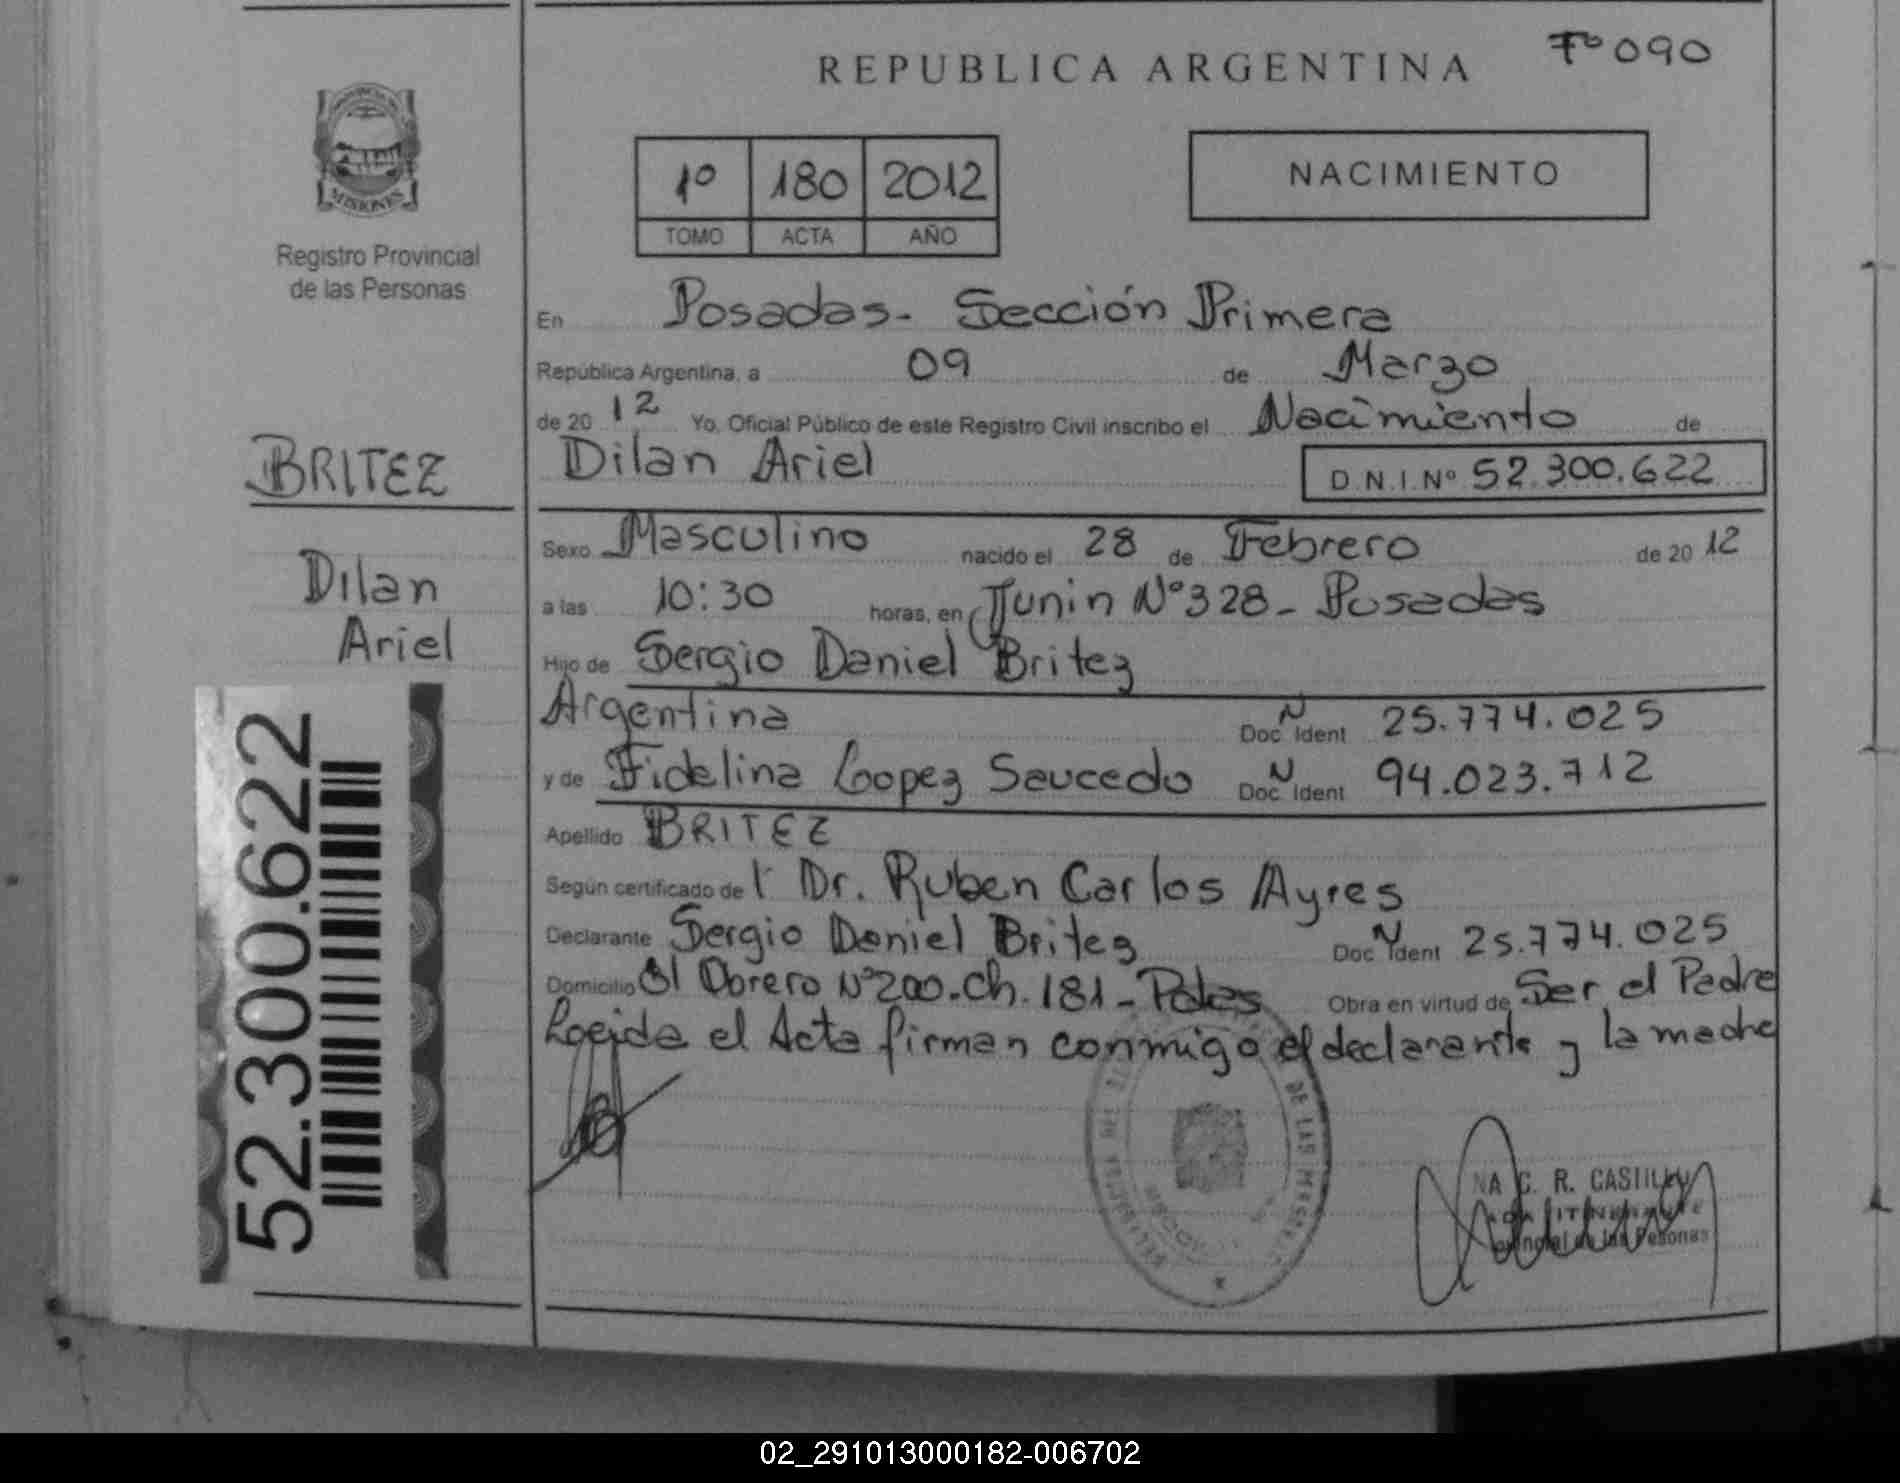 Fº 090
REPUBLICA ARGENTINA
MISIONES
Registro Provincial
de las Personas
1º 180 2012
TOMO ACTA AÑO
NACIMIENTO
En Posadas - Sección Primera
República Argentina, a 09 de Marzo
de 20 12 Yo, Oficial Público de este Registro Civil inscribo el Nacimiento de
Dilan Ariel D.N.I. Nº 52.300.622
BRITEZ
Dilan
Ariel
52.300.622
Sexo Masculino nacido el 28 de Febrero de 20 12
a las 10:30 horas, en Junin Nº 328 - Posadas
Hijo de Sergio Daniel Britez
Argentina Doc N Ident 25.774.025
y de Fidelina Lopez Saucedo Doc N Ident 94.023.712
Apellido BRITEZ
Según certificado de l Dr. Ruben Carlos Ayres
Declarante Sergio Daniel Britez Doc N Ident 25.774.025
Domicilio Bº Obrero Nº 200 - Ch. 181 - Pdas Obra en virtud de Ser el Padre
Leeida el Acta firman conmigo el declarante y la madre
DE LAS PERSONAS
C. R. CASTILLO
ITINERANTE
de las Personas
02_291013000182-006702